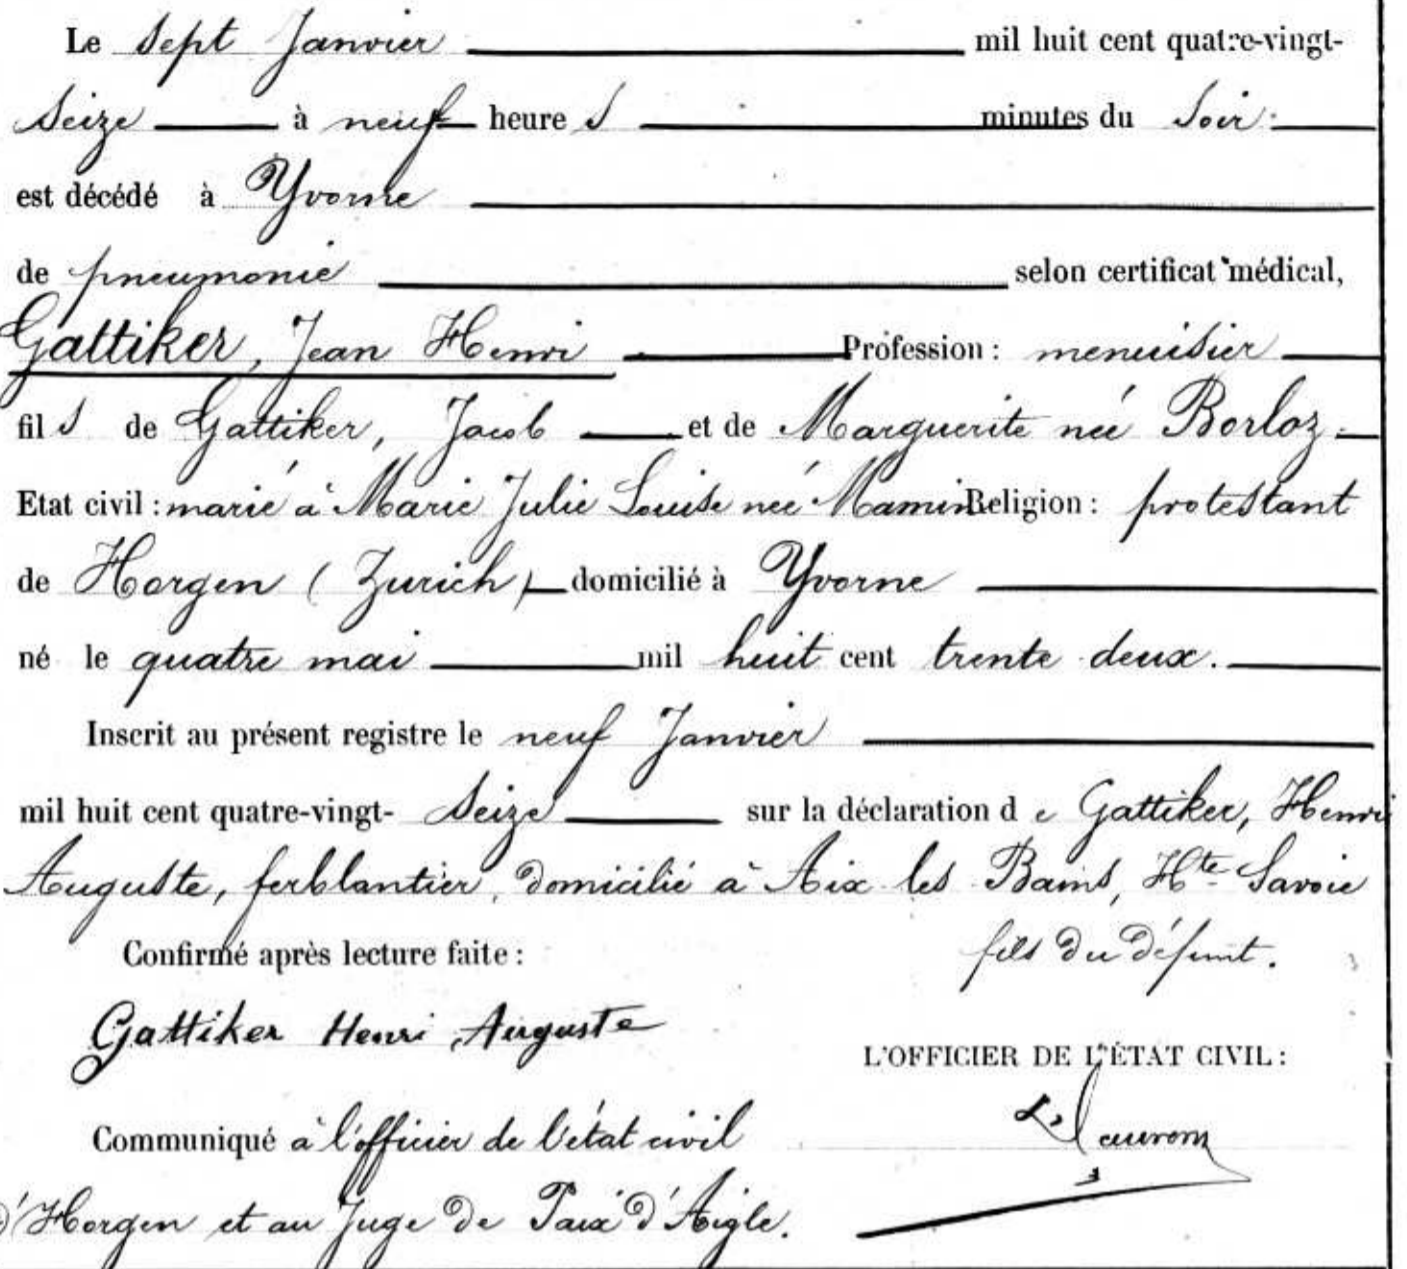 Le Sept Janvier mil huit cent quatre-vingt-
Seize à neuf heure s minutes du Soir.
est décédé à Yvorne
de pneumonie selon certificat médical,
Gattiker, Jean Henri Profession : menuisier
fil s de Gattiker, Jacob et de Marguerite née Borloz.
Etat civil : marié à Marie Julie Louise née Mamin Religion : protestant
de Horgen (Zurich) domicilié à Yvorne
né le quatre mai mil huit cent trente deux.
Inscrit au présent registre le neuf Janvier
mil huit cent quatre-vingt- Seize sur la déclaration d e Gattiker, Henri
Auguste, ferblantier, domicilié à Aix les Bains, Hte Savoie
fils du défunt.
Confirmé après lecture faite :
Gattiker Henri Auguste
L'OFFICIER DE L'ÉTAT CIVIL :
Communiqué à l'officier de l'état civil
d'Horgen et au Juge de Paix d'Aigle.